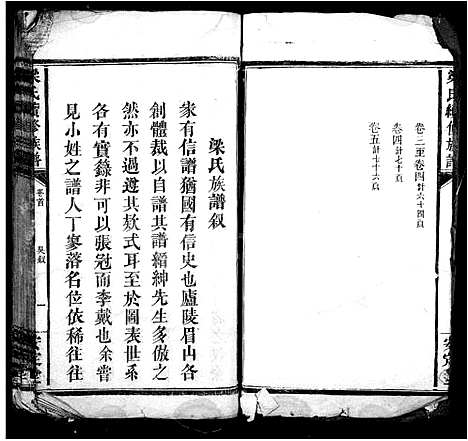 梁氏續修族譜
卷三至卷四計六十四頁
卷四計七十頁
卷五計七十六頁
安定堂
梁氏族譜叙
家有信譜猶國有信史也廬陵眉山各
創體裁以自譜其譜縉紳先生多倣之
然亦不過遵其欵式耳至於圖表世系
各有實錄非可以張冠而李戴也余嘗
見小姓之譜人丁寥落名位依稀往往
梁氏續修族譜
卷首
吳叙
一
安定堂